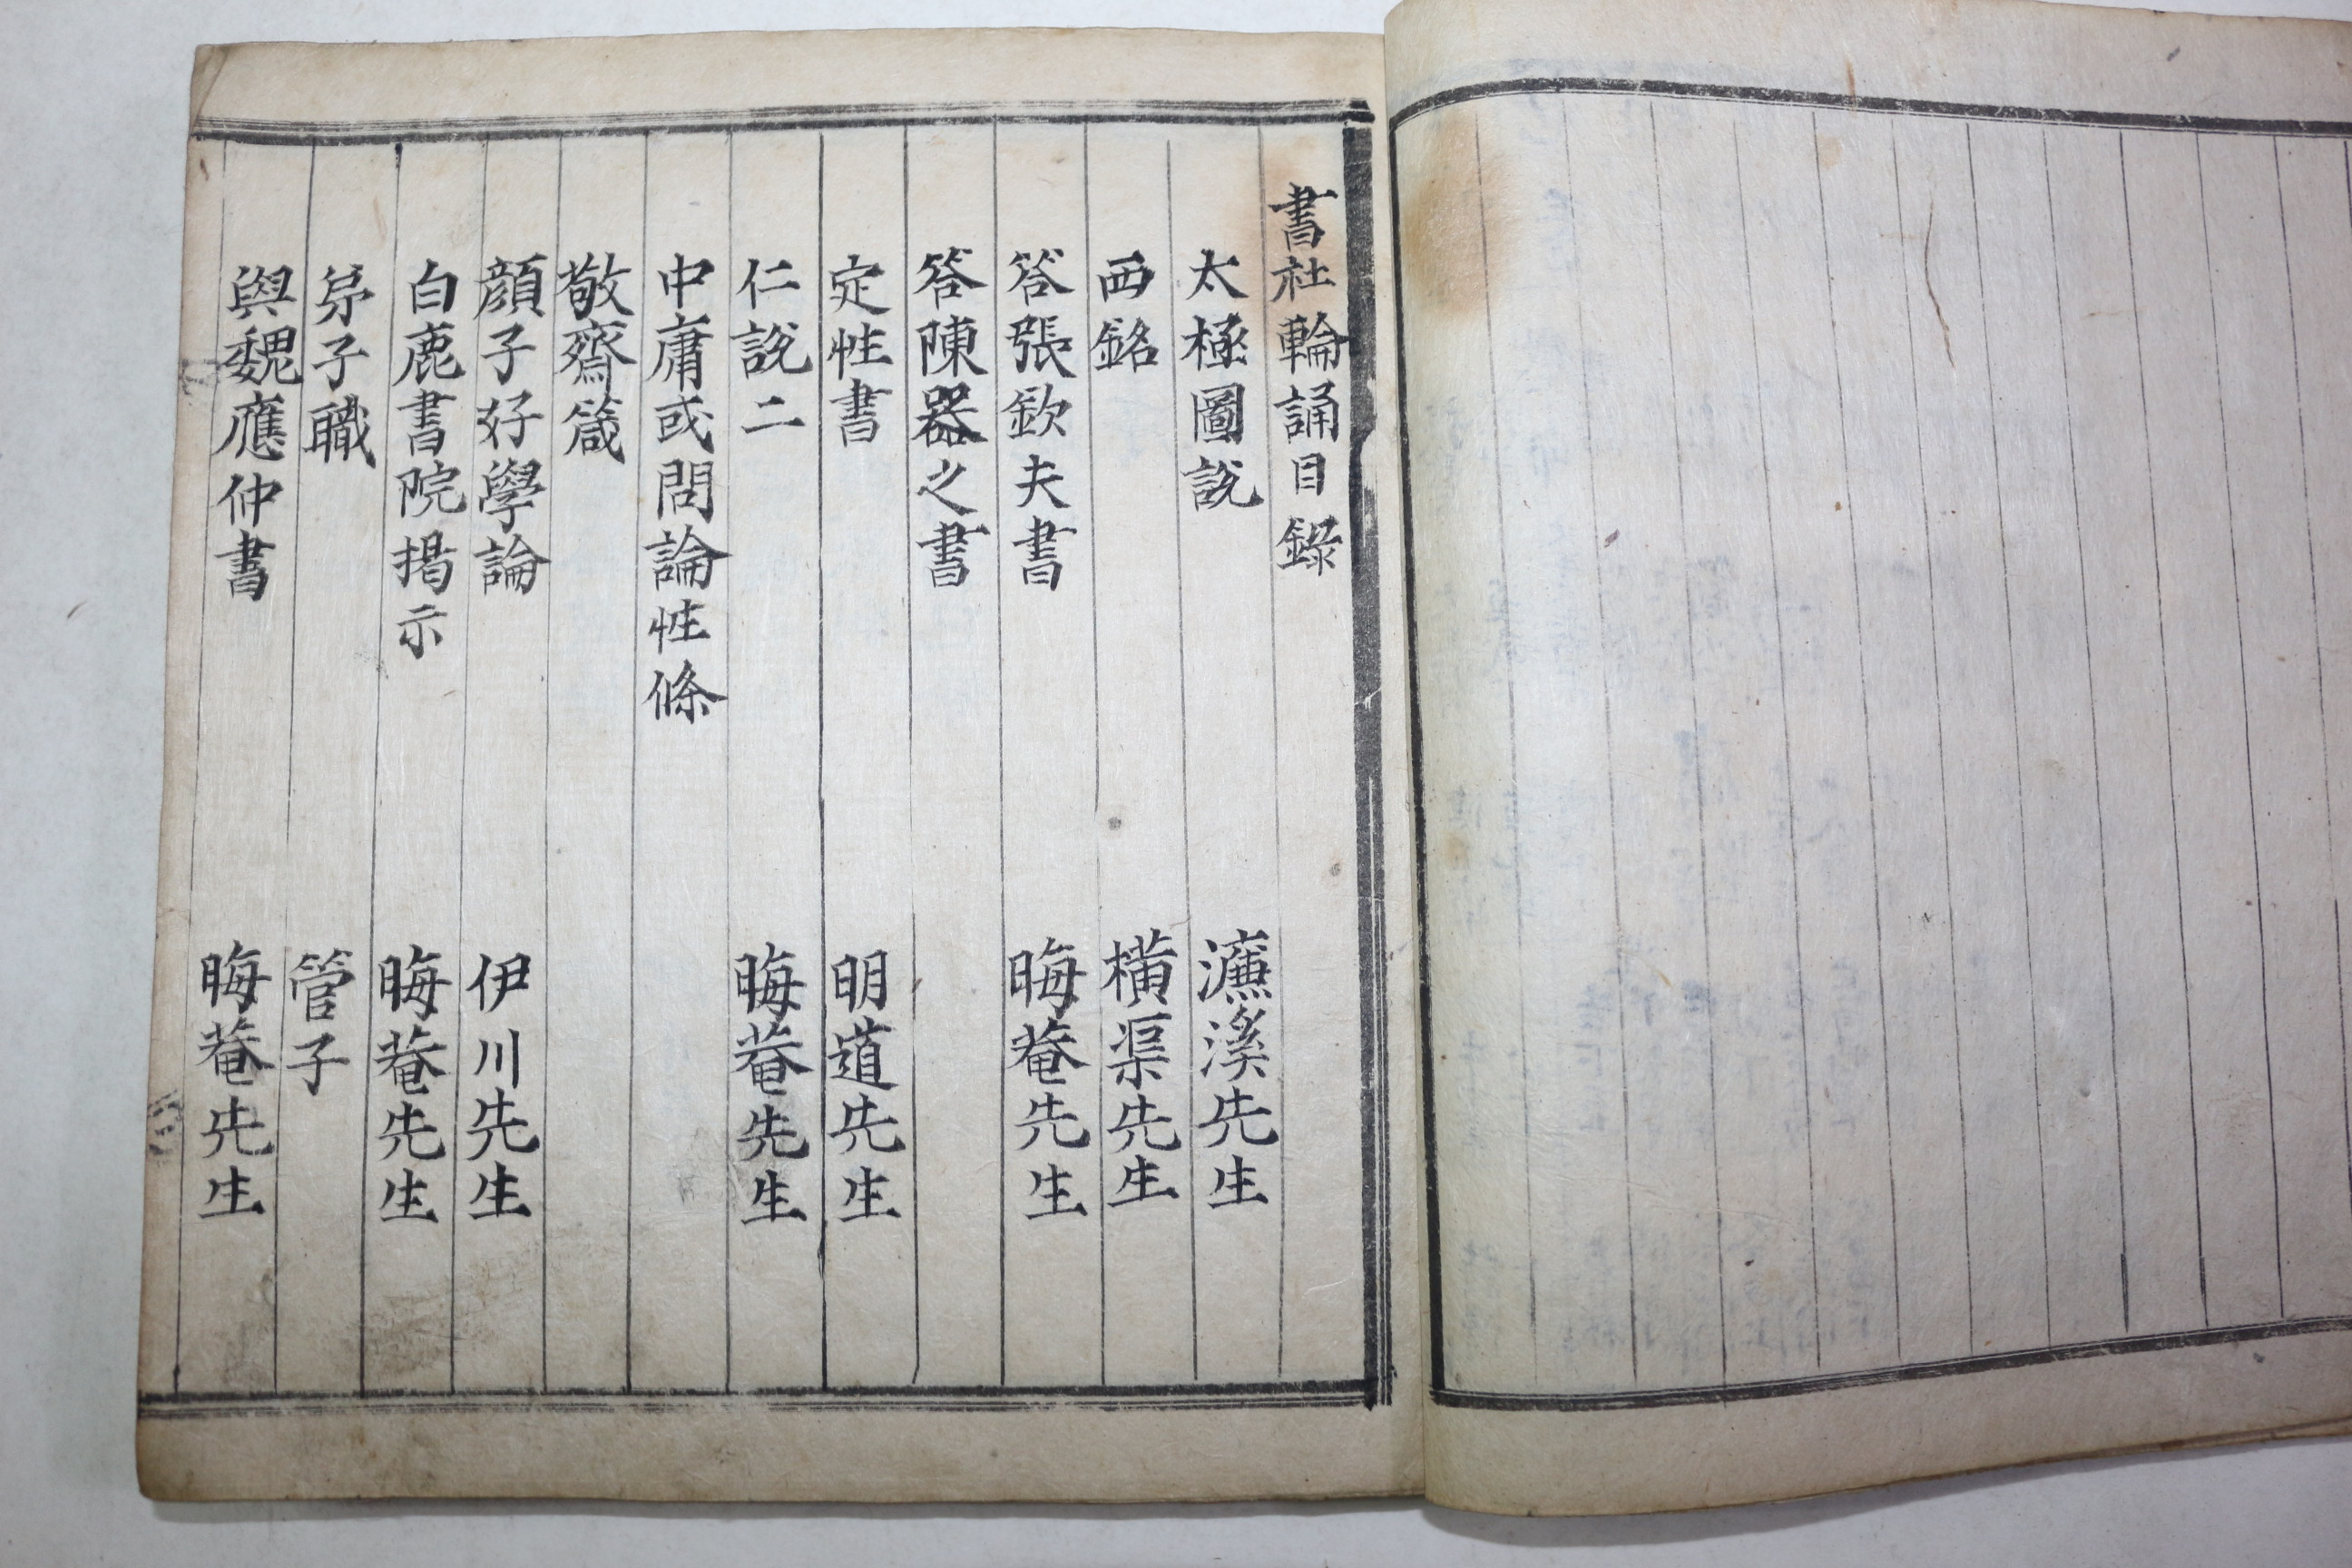 書社輪誦目錄
太極圖說 濂溪先生
西銘 橫渠先生
答張欽夫書 晦菴先生
答陳器之書
定性書 明道先生
仁說二 晦菴先生
中庸或問論性條
敬齋箴
顔子好學論 伊川先生
白鹿書院揭示 晦菴先生
弟子職 管子
與魏應仲書 晦菴先生